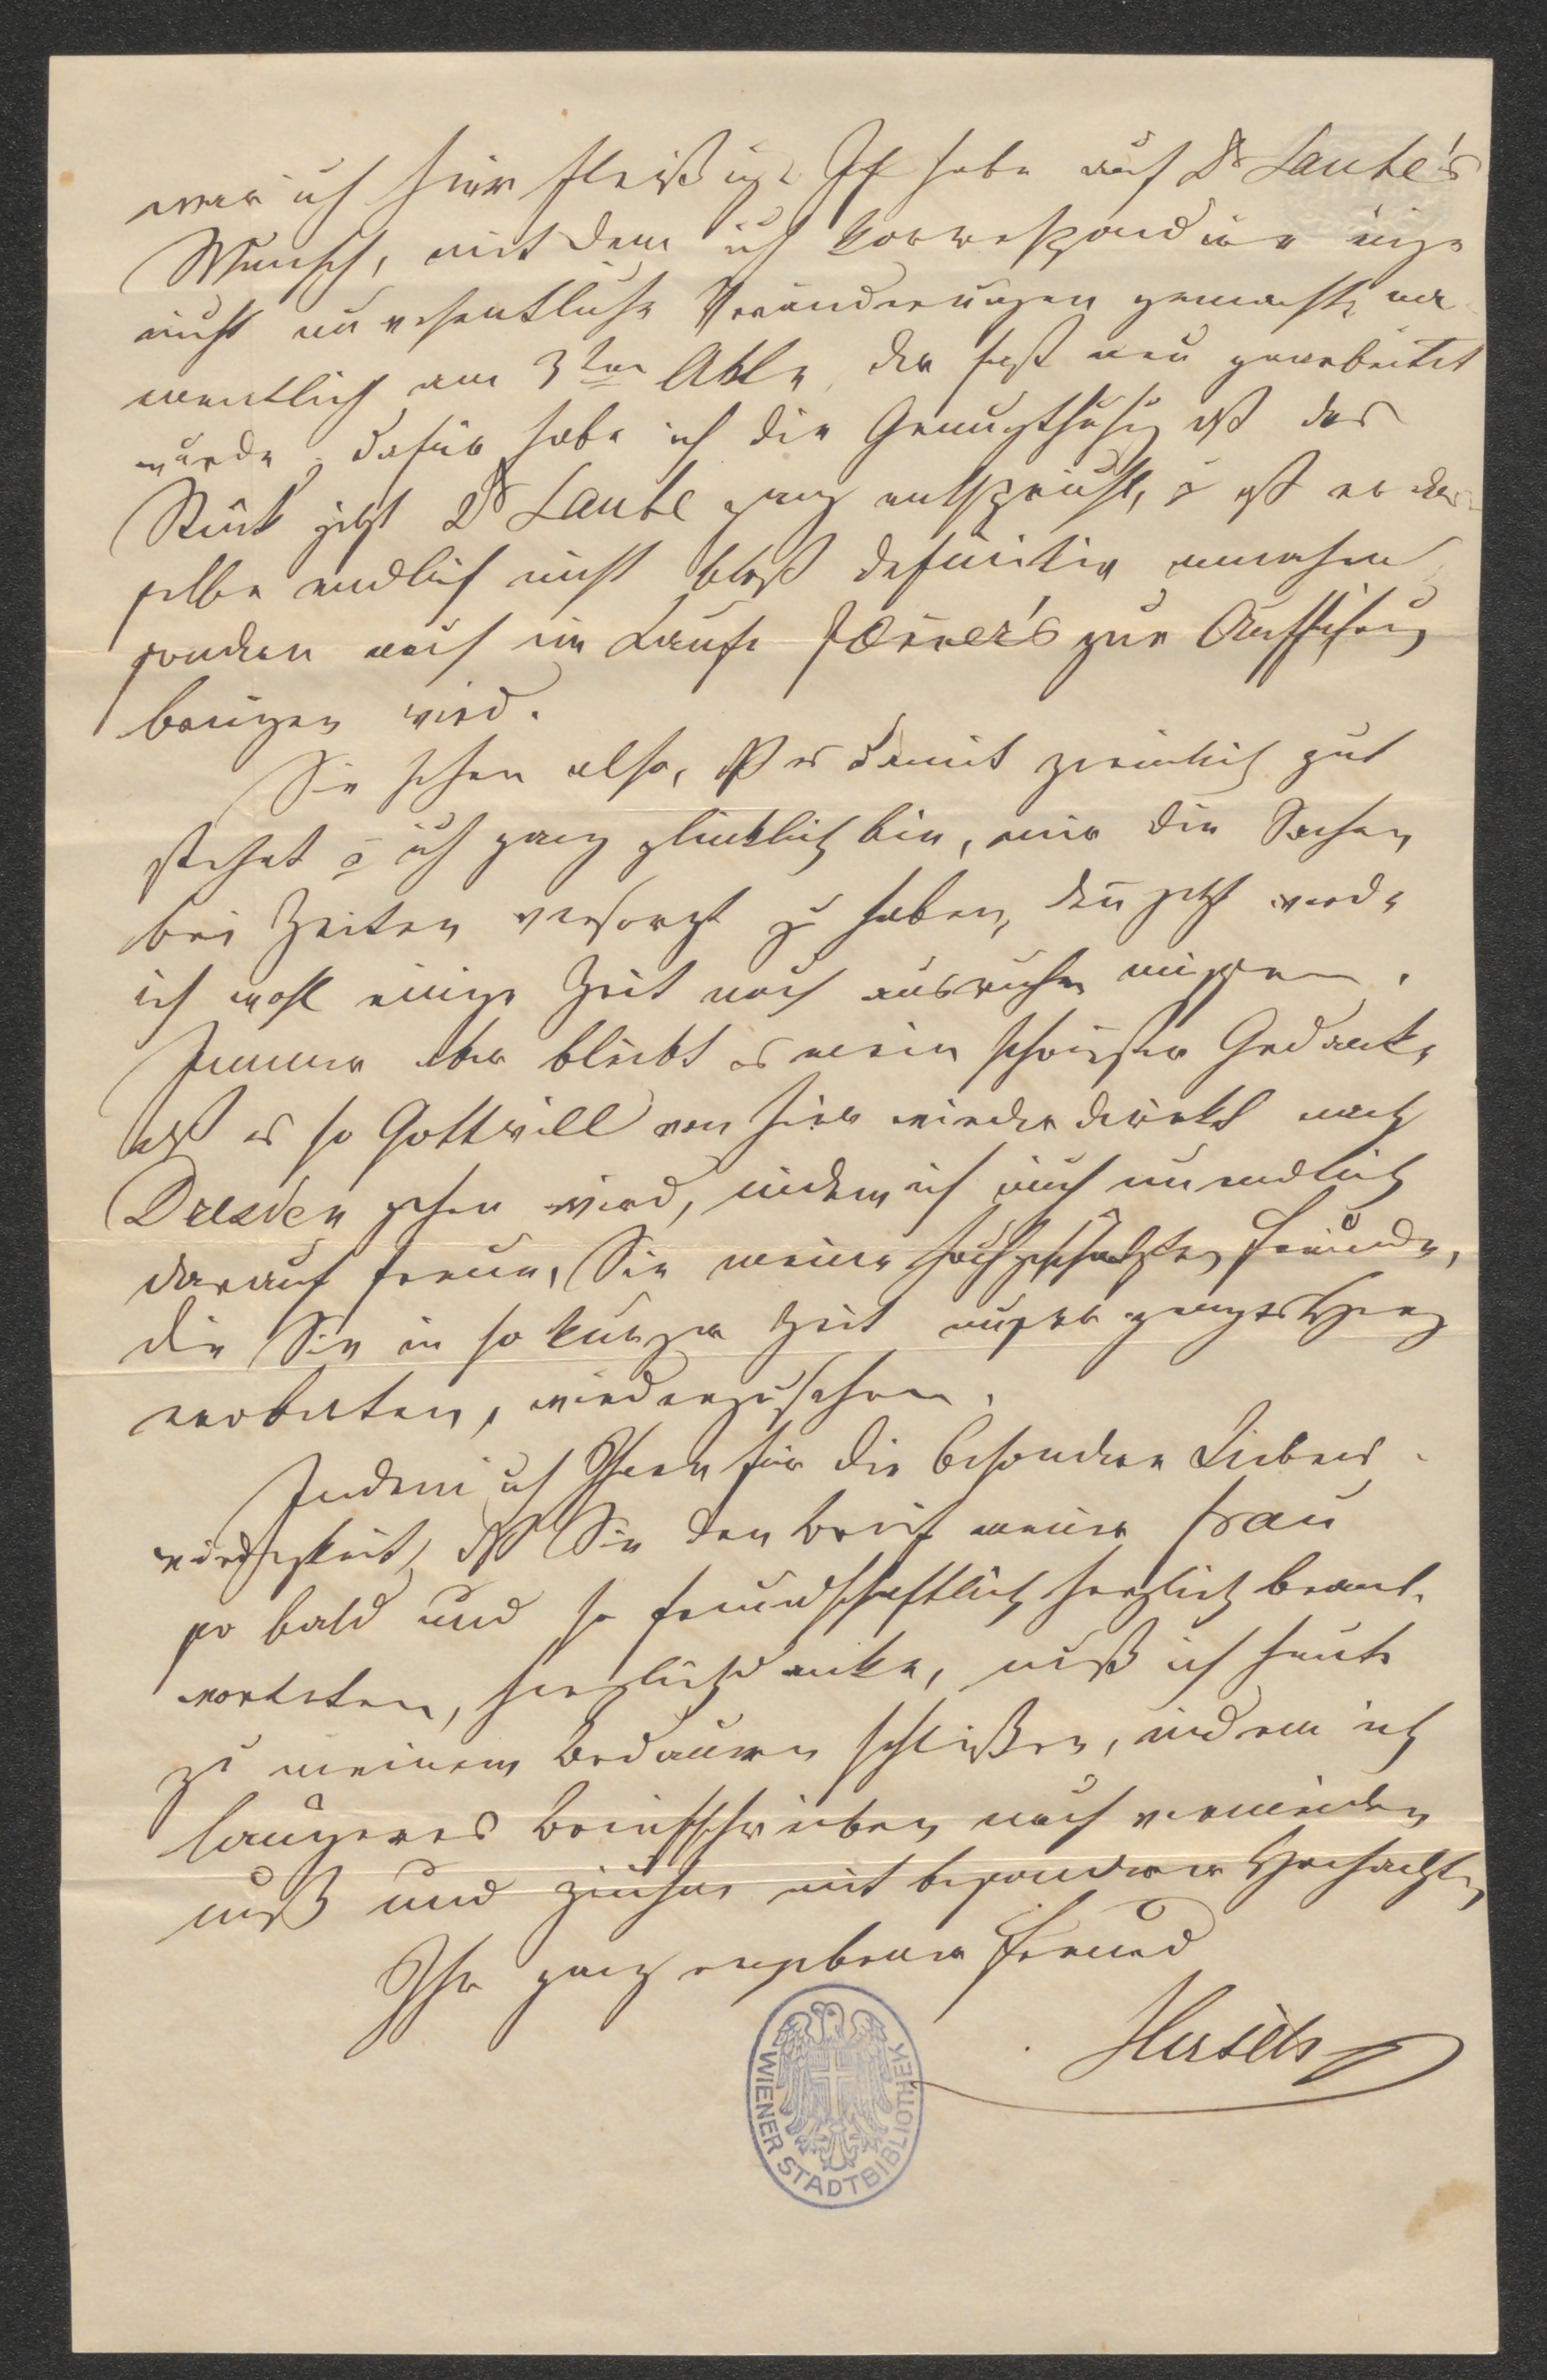 war ich hier fleißig. Ich habe auf Dr Laube's
Wunsch, mit dem ich korrespondire einige
nicht unwesentliche Veränderungen gemacht, na-
mentlich am 3ten Akte, der fast neu gearbeitet
wurde; dafür habe ich die Genugthuung dß das
Stück jetzt Dr Laube ganz entspricht, u dß er das-
selbe endlich nicht bloß definitiv annehmen
sondern auch im Laufe zur Aufführung
bringen wird.
Sie sehen also, dß es damit ziemlich gut
stehet u ich ganz glücklich bin, mir die Sachen
bei Zeiten versorgt zu haben, den̄ jetzt werde
ich wohl einige Zeit noch ausruhen müssen.
Immer aber bleibt es mein schönster Gedanke
dß es so Gott will von hier wieder direkt nach
Dresden gehen wird, indem ich mich unendlich
darauf freue, Sie meine hochgeschätzten Freunde,
die Sie in so kurzer Zeit unser ganzes Herz
eroberten, wiederzusehen.
Indem ich Ihnen für die besondere Liebens-
würdigkeit, dß Sie den Brief meiner Frau
so bald und so freundschaftlich herzlich beant-
worteten, herzlich danke, muß ich heute
zu meinem Bedauern schließen, indem ich
längeres Briefschreiben noch vermeiden
muß und zeichne mit besonderer Hochachtung
Ihr ganz ergebener Freund
Hirsch
WIENER STADTBIBLIOTHEK